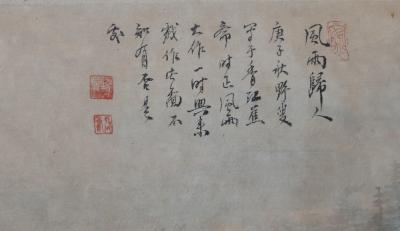 風雨歸人
庚子秋野叟
寫于香江蕉
齋時正風雨
大作一時興來
戲作此圖不
知有否是